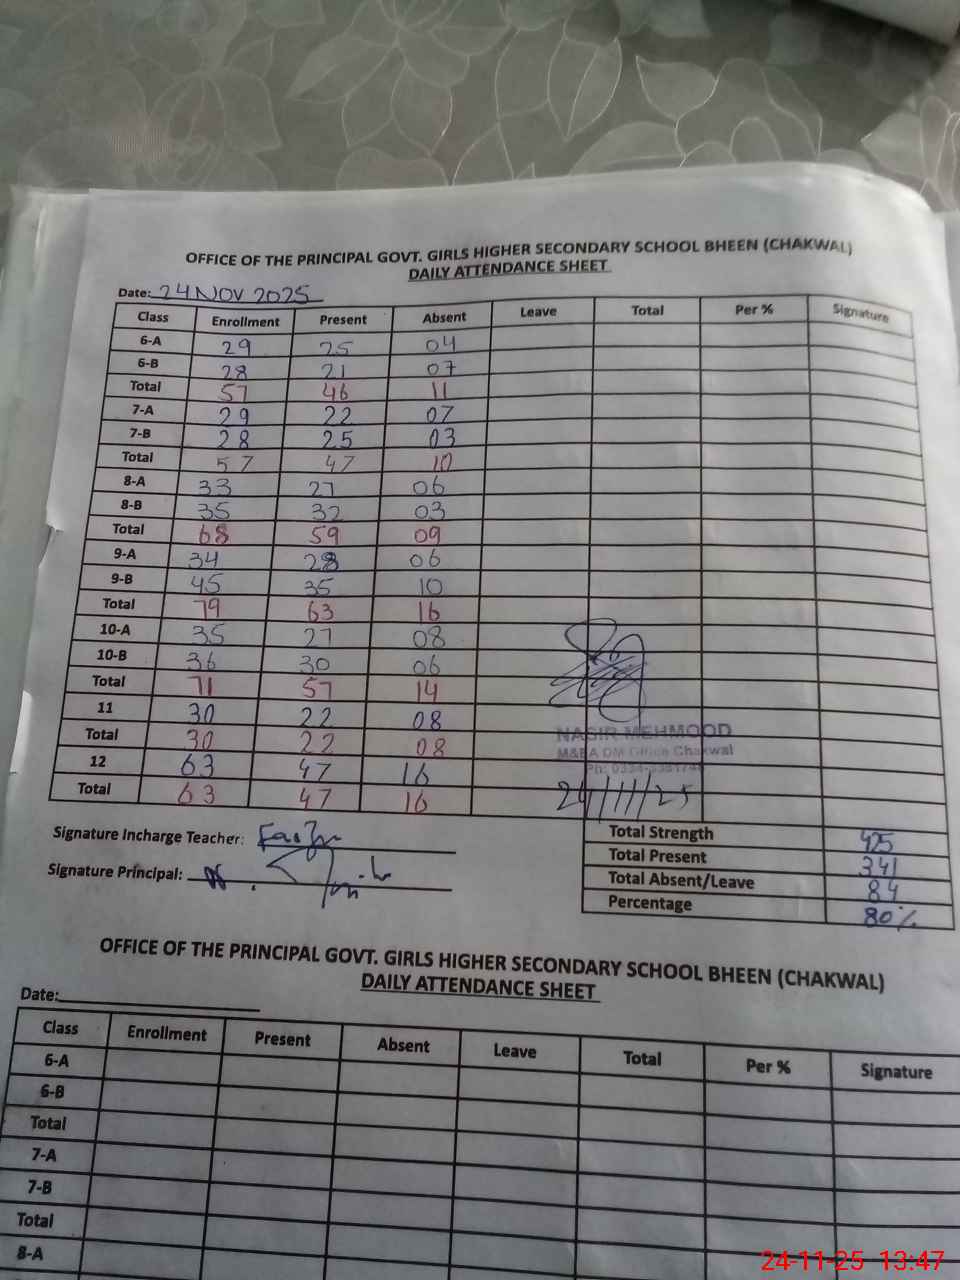 OFFICE OF THE PRINCIPAL GOVT. GIRLS HIGHER SECONDARY SCHOOL BHEEN (CHAKWAL)
DAILY ATTENDANCE SHEET
Date: 24 NOV 2025
Class Enrollment Present Absent Leave Total Per % Signature
6-A 29 25 04
6-B 28 21 07
Total 57 46 11
7-A 29 22 07
7-B 28 25 03
Total 57 47 10
8-A 33 27 06
8-B 35 32 03
Total 68 59 09
9-A 34 28 06
9-B 45 35 10
Total 79 63 16
10-A 35 27 08
10-B 36 30 06
Total 71 57 14
11 30 22 08
Total 30 22 08
12 63 47 16
Total 63 47 16
NASIR MEHMOOD
M&EA DM Office Chakwal
Ph:
24/11/25
Signature Incharge Teacher:
Signature Principal:
Total Strength 425
Total Present 341
Total Absent/Leave 84
Percentage 80%
OFFICE OF THE PRINCIPAL GOVT. GIRLS HIGHER SECONDARY SCHOOL BHEEN (CHAKWAL)
DAILY ATTENDANCE SHEET
Date:
Class Enrollment Present Absent Leave Total Per % Signature
6-A
6-B
Total
7-A
7-B
Total
8-A
24-11-25 13:47